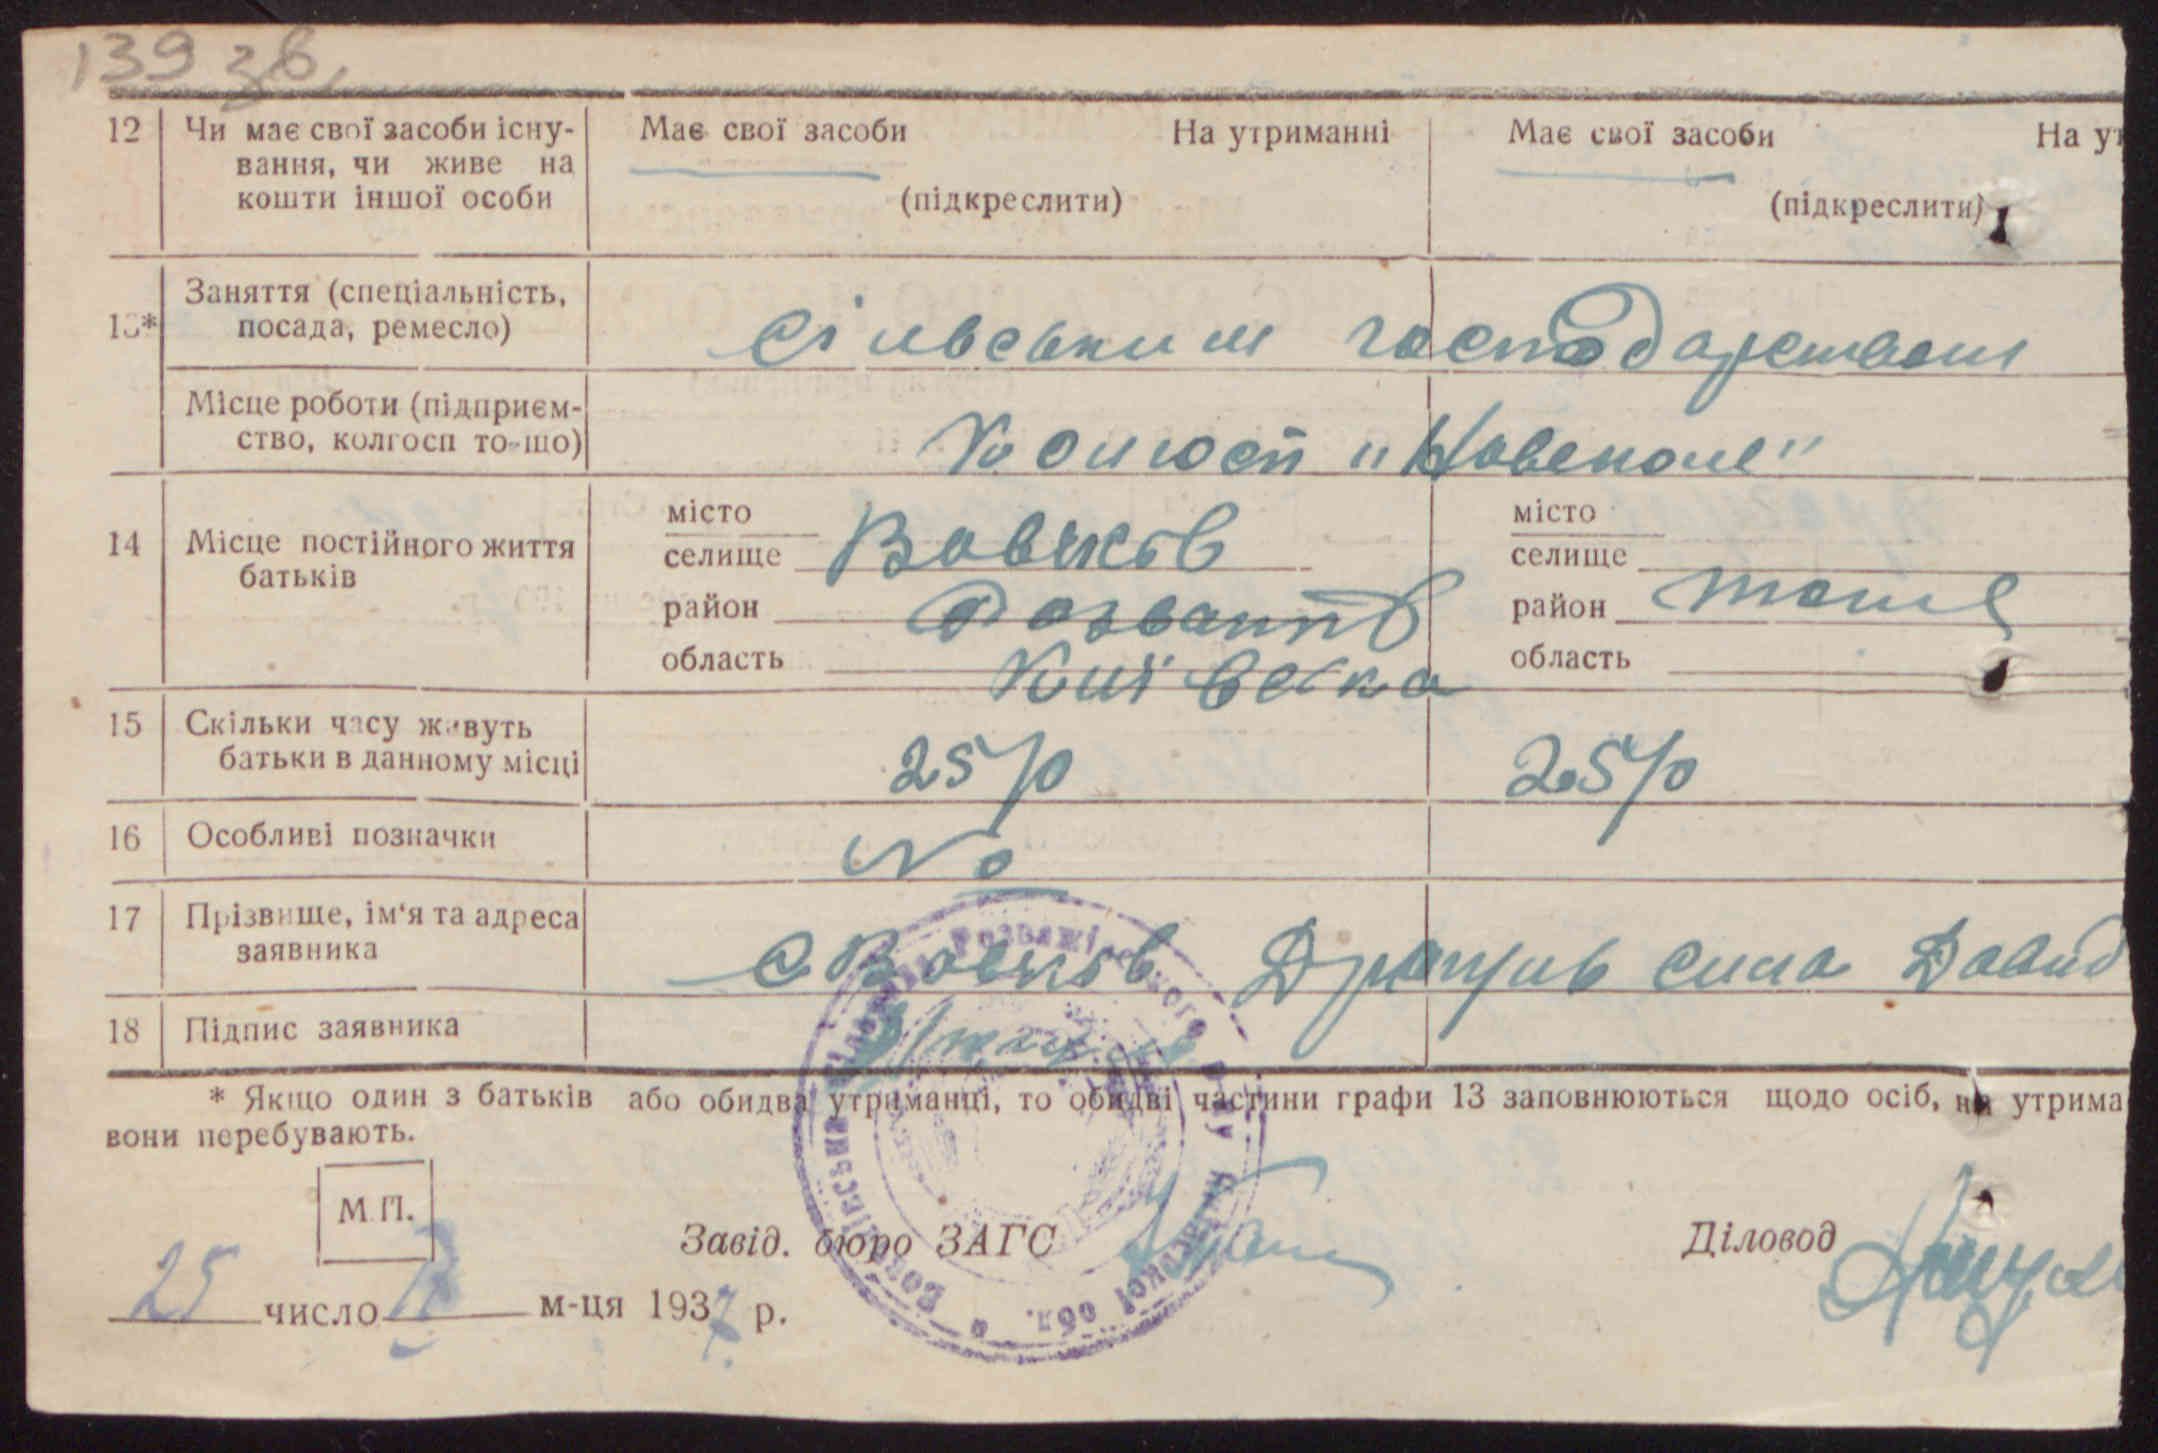 139 зв.
12 Чи має свої засоби існу-
вання, чи живе на
кошти іншої особи
Має свої засоби На утриманні
(підкреслити)
Має свої засоби На ут
(підкреслити)
13* Заняття (спеціальність,
посада, ремесло)
сільським господарством
Місце роботи (підприєм-
ство, колгосп то-що)
Колгосп "Нове поле"
14 Місце постійного життя
батьків
місто
селище Вовчків
район Розважів
область Київська
місто
селище
район теж
область
15 Скільки часу живуть
батьки в данному місці
25 р 25 р
16 Особливі позначки
17 Прізвище, ім'я та адреса
заявника
с Вовчків сила Давид
18 Підпис заявника
* Якщо один з батьків або обидва утриманці, то обидві частини графи 13 заповнюються щодо осіб, на утрима
вони перебувають.
М.П.
Завід. бюро ЗАГС
Діловод
25 число м-ця 1937 р.